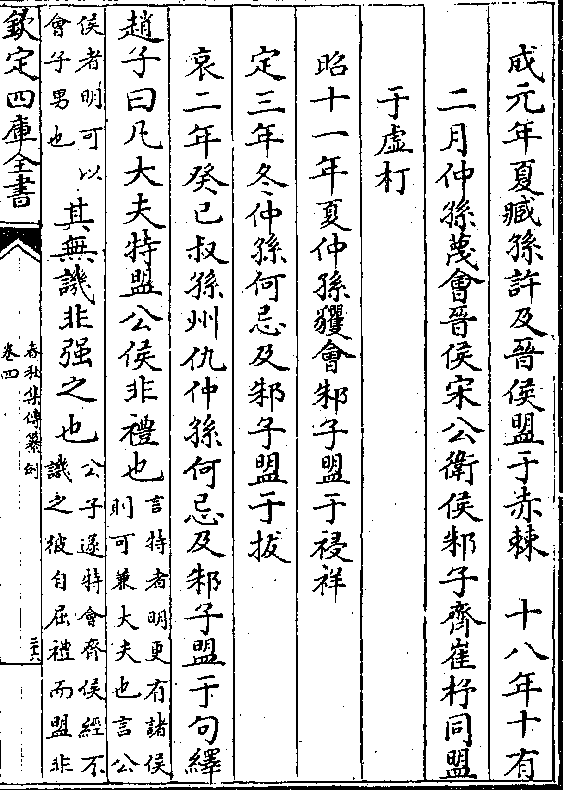 成元年夏臧孫許及晉侯盟于赤棘　十八年十有
二月仲孫蔑會晉侯宋公衛侯邾子齊崔杼同盟
于虛朾
昭十一年夏仲孫貜會邾子盟于祲祥
定三年冬仲孫何忌及邾子盟于拔
哀二年癸巳叔孫州仇仲孫何忌及邾子盟于句繹
趙子曰凡大夫特盟公侯非禮也
言特者明更有諸侯
則可兼大夫也言公
侯者明可以
會子男也
其無譏非强之也
公子遂特會齊侯經不
譏之彼自屈禮而盟非
欽定四庫全書
春秋集傳纂例
卷四